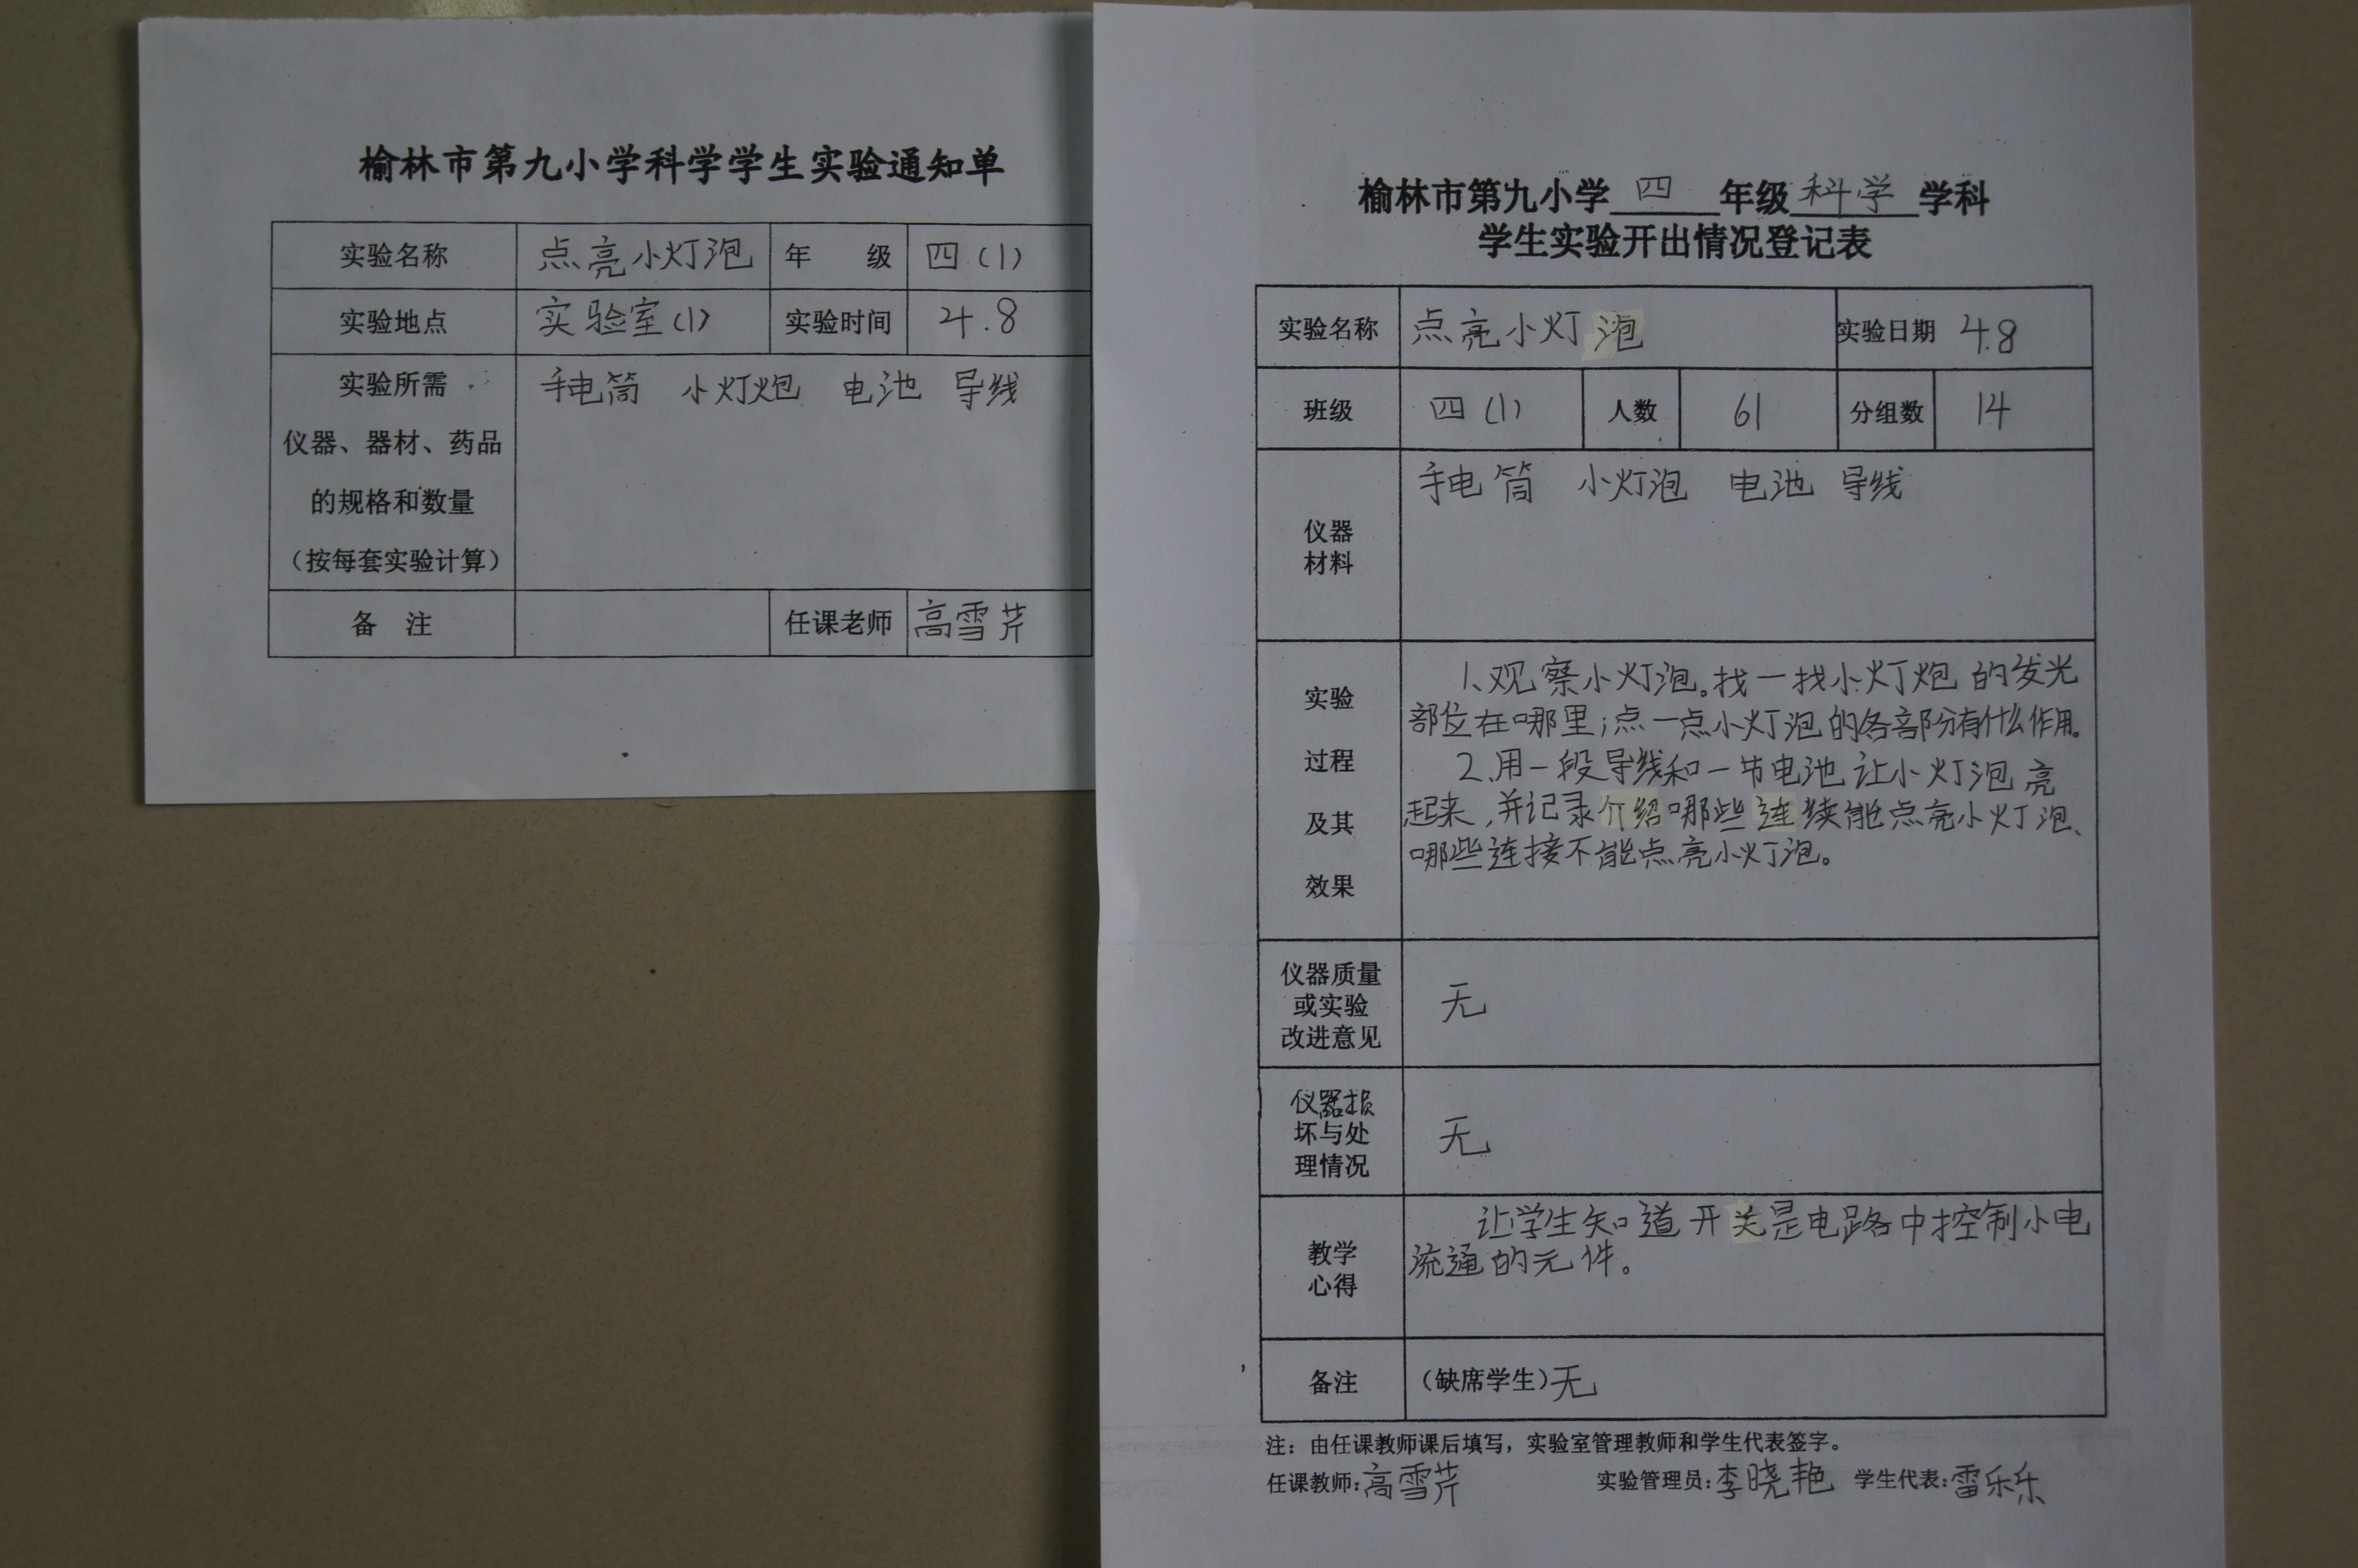 榆林市第九小学科学学生实验通知单
实验名称 点亮小灯泡 年 级 四(1)
实验地点 实验室(1) 实验时间 4.8
实验所需 手电筒 小灯炮 电池 导线
仪器、器材、药品
的规格和数量
(按每套实验计算)
备 注 任课老师 高雪芹
榆林市第九小学 四 年级 科学 学科
学生实验开出情况登记表
实验名称 点亮小灯泡 实验日期 4.8
班级 四(1) 人数 61 分组数 14
手电筒 小灯泡 电池 导线
仪器
材料
实验
过程
及其
效果
1、观察小灯泡。找一找小灯炮的发光
部位在哪里;点一点小灯泡的各部分有什么作用。
2、用一段导线和一节电池让小灯泡亮
起来,并记录介绍哪些连续能点亮小灯泡、
哪些连接不能点亮小灯泡。
仪器质量
或实验
改进意见
无
仪器损
坏与处
理情况
无
教学
心得
让学生知道开关是电路中控制小电
流通的元件。
备注 (缺席学生)无
注:由任课教师课后填写,实验室管理教师和学生代表签字。
任课教师:高雪芹 实验管理员:李晓艳 学生代表:雷乐乐